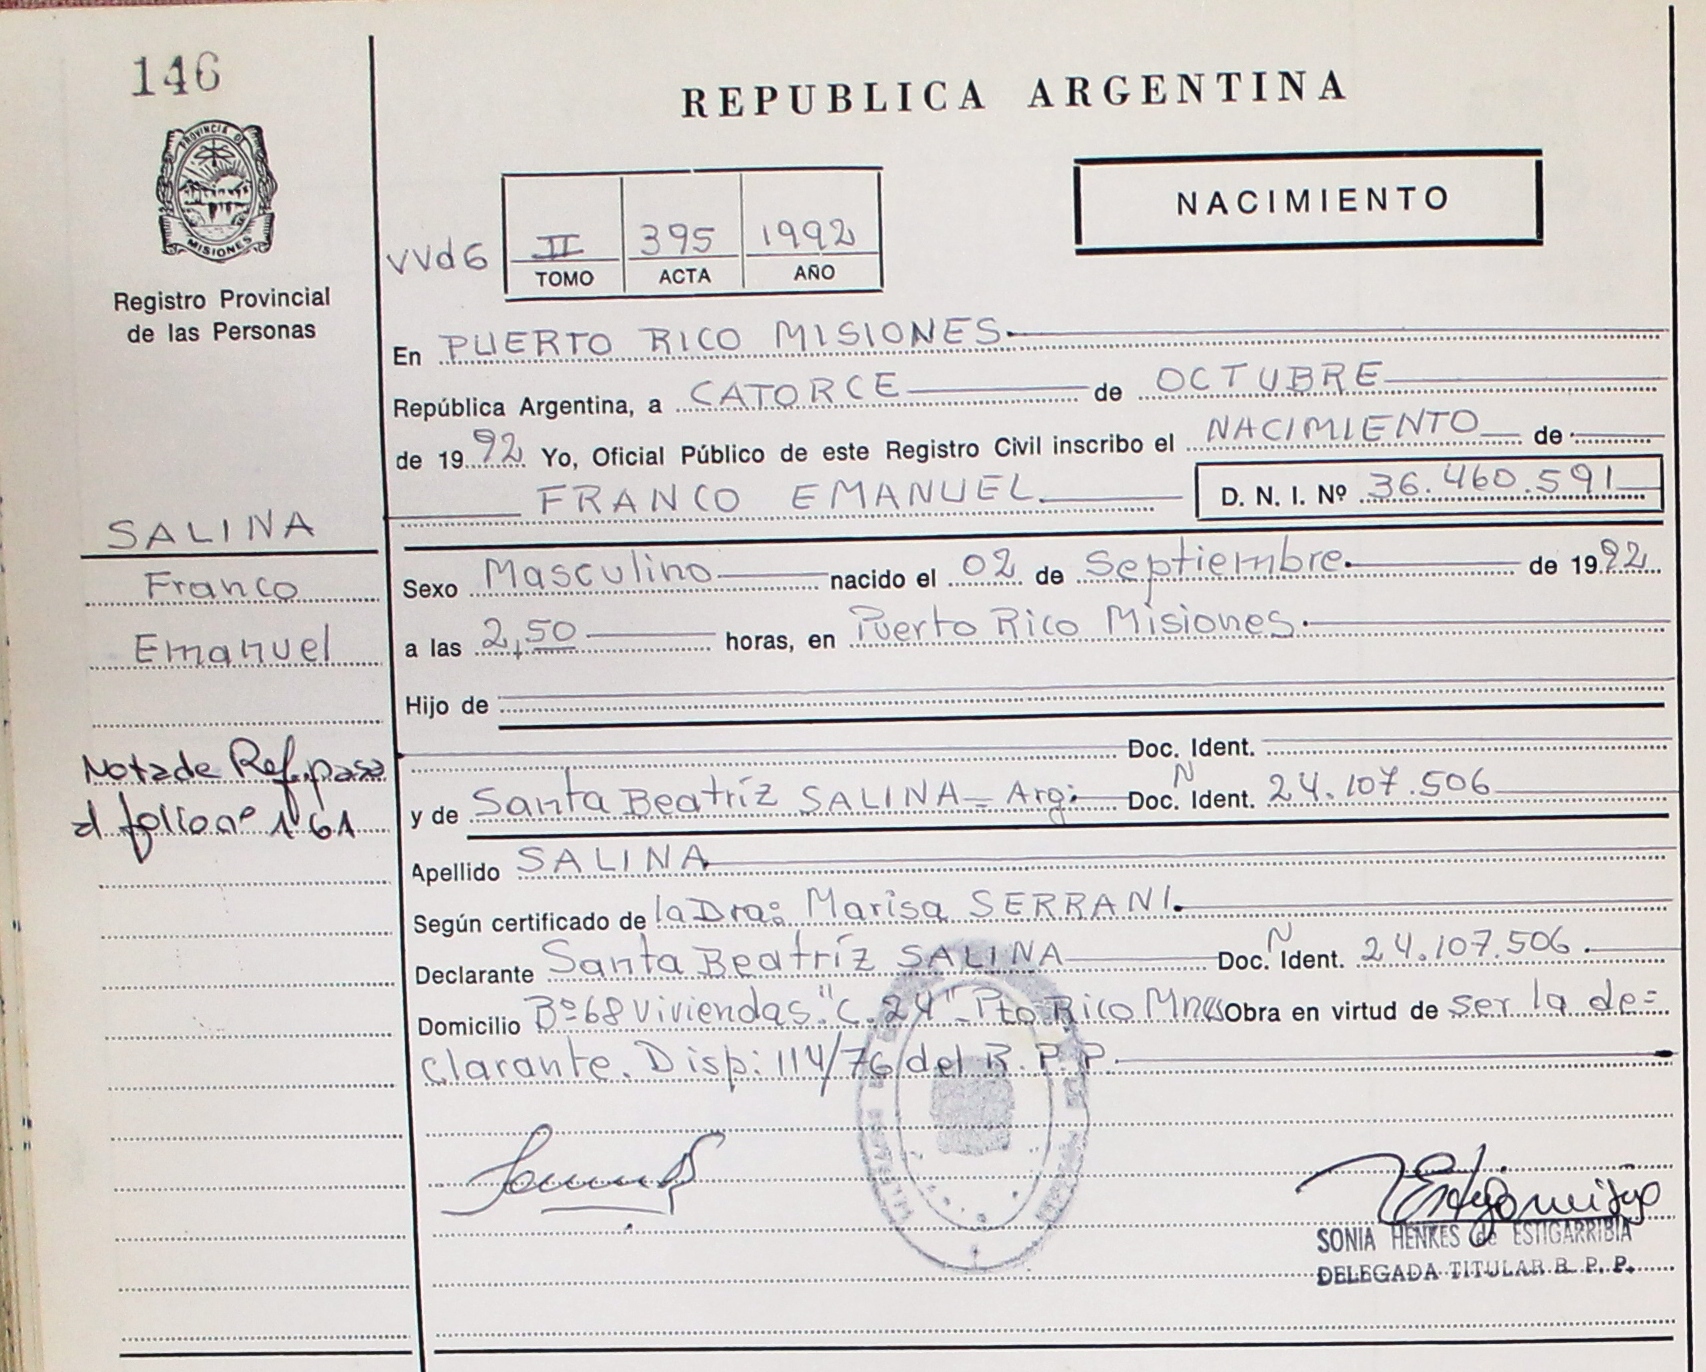 146
PROVINCIA DE
MISIONES
Registro Provincial
de las Personas
SALINA
Franco
Emanuel
Nota de Ref. pasa
al folio nº 161
REPUBLICA ARGENTINA
NACIMIENTO
VVd6
II 395 1992
TOMO ACTA AÑO
En PUERTO RICO MISIONES
República Argentina, a CATORCE de OCTUBRE
de 1992 Yo, Oficial Público de este Registro Civil inscribo el NACIMIENTO de
FRANCO EMANUEL D. N. I. Nº 36.460.591
Sexo Masculino nacido el 02 de Septiembre de 1992
a las 2,50 horas, en Puerto Rico Misiones.
Hijo de
Doc. Ident.
y de Santa Beatríz SALINA - Arg: Doc. N Ident. 24.107.506
Apellido SALINA
Según certificado de la Dra: Marisa SERRANI.
Declarante Santa Beatríz SALINA Doc. N Ident. 24.107.506.
Domicilio Bº 68 Viviendas "C. 24" - Pto Rico Mnes Obra en virtud de ser la de=
clarante. Disp: 114/76 del R. P. P.
SONIA HENKES de ESTIGARRIBIA
DELEGADA TITULAR R. P. P.